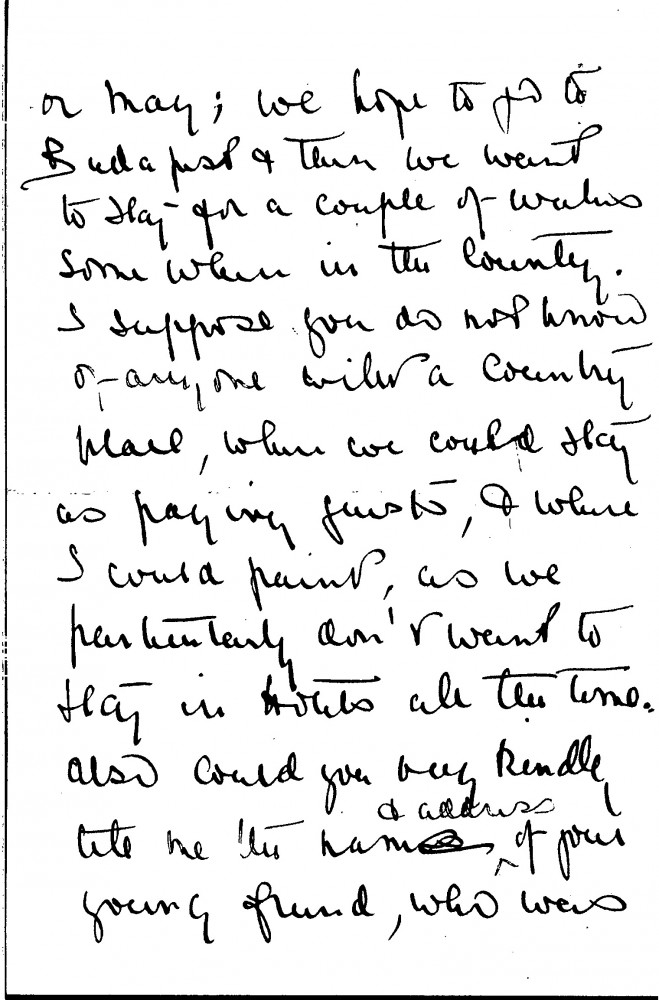 or May; we hope to go to
Budapest & then we want
to stay for a couple of weeks
some where in the Country.
I suppose you do not know
of anyone with a Country
place, where we could stay
as paying guests, & where
I could paint, as we
particularly don't want to
stay in Hotels all the time.
Also could you very kindly
& address
tell me the name of your
young friend, who was